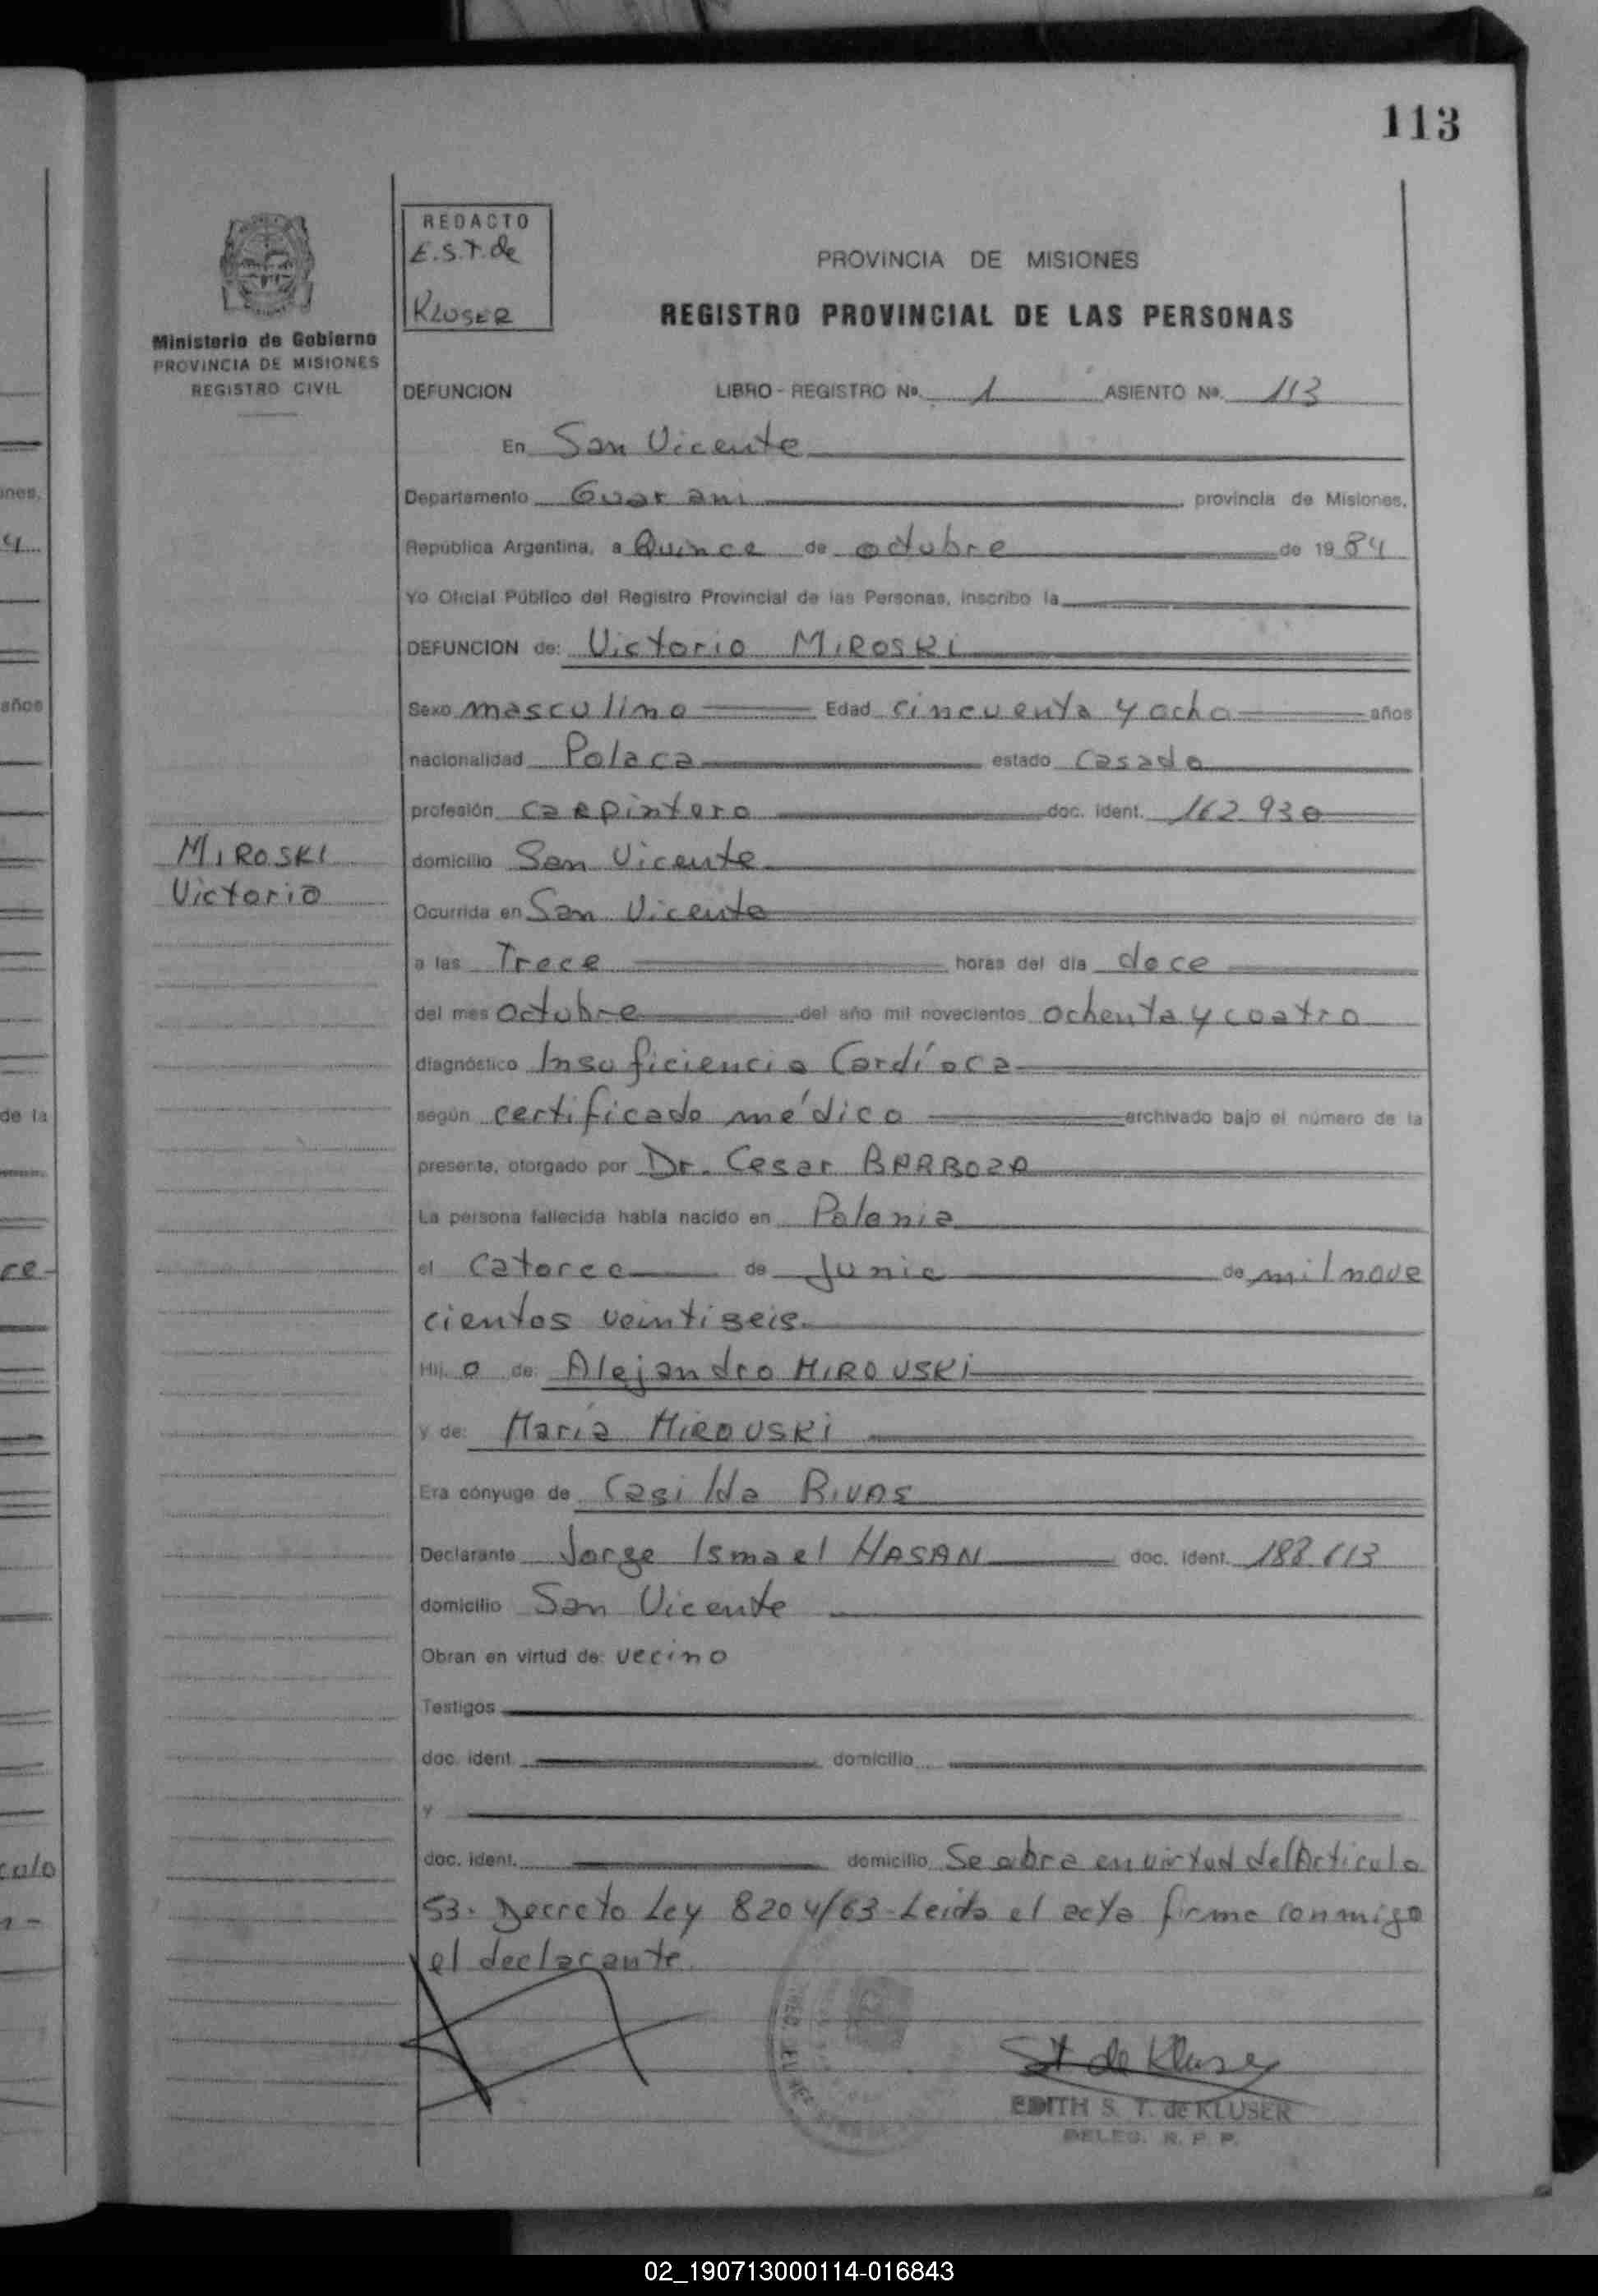 113
REDACTO
E.S.T. de
KLUSER
Ministerio de Gobierno
PROVINCIA DE MISIONES
REGISTRO CIVIL
PROVINCIA DE MISIONES
REGISTRO PROVINCIAL DE LAS PERSONAS
DEFUNCION LIBRO - REGISTRO Nº. 1 ASIENTO Nº. 113
En San Vicente
Departamento Guarani provincia de Misiones,
República Argentina, a Quince de octubre de 1984
Yo Oficial Público del Registro Provincial de las Personas, inscribo la
DEFUNCION de: Victorio MIROSKI
Sexo masculino Edad cincuenta y ocho años
nacionalidad Polaca estado casado
profesión carpintero doc. ident. 162.930
MIROSKI
Victorio
domicilio San Vicente
Ocurrida en San Vicente
a las Trece horas del día doce
del mes octubre del año mil novecientos ochenta y cuatro
diagnóstico Insuficiencia Cardíaca
según certificado médico archivado bajo el número de la
presente, otorgado por Dr. Cesar BARBOZA
La persona fallecida había nacido en Polonia
el catorce de Junio de mil nove
cientos veintiseis
Hij o de: Alejandro MIROUSKI
y de: María MIROUSKI
Era cónyuge de Casilda RIVAS
Declarante Jorge Ismael HASAN doc. ident. 188.613
domicilio San Vicente
Obran en virtud de: vecino
Testigos
doc. ident. domicilio
y
doc. ident. domicilio Se obra en virtud del Articulo
53. Decreto Ley 8204/63 - Leida el acta firma conmigo
el declarante
St de Kluser
EDITH S. T. de KLUSER
DELEG. R. P. P.
ines,
4
años
de la
re
culo
02_190713000114-016843